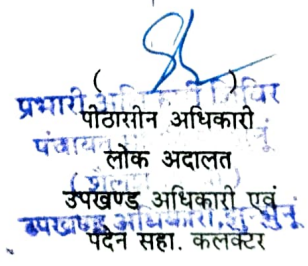 ( )
प्रभारी अधिकारी शिविर
पीठासीन अधिकारी
पंचायत
लोक अदालत
(
उपखण्ड अधिकारी एवं
उपखण्ड अधिकारी, झुन्झुनू
पदेन सहा. कलक्टर